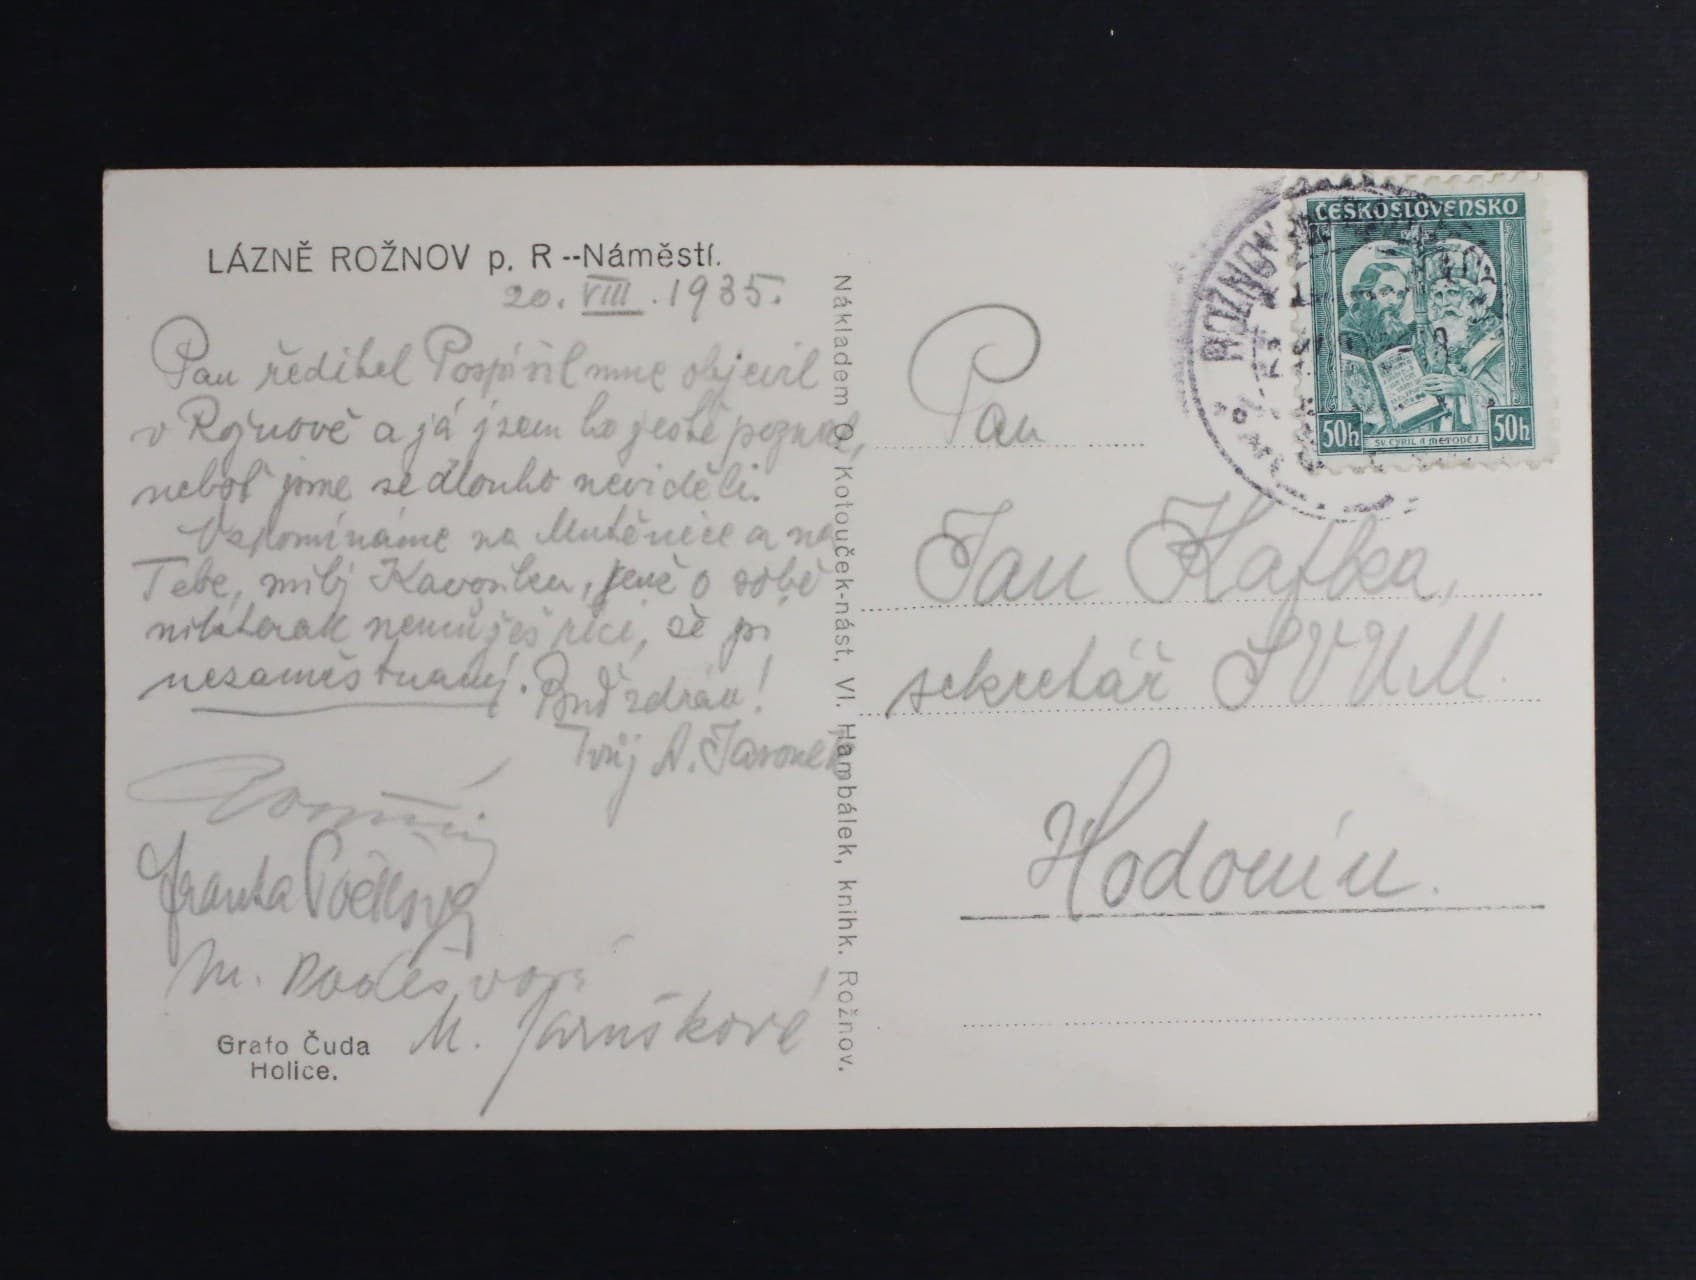 LÁZNĚ ROŽNOV p. R--Náměstí.
20. VIII. 1935.
Pan ředitel Pospíšil mne objevil
v Rožnově a já jsem ho ještě poznal,
neboť jsme se dlouho neviděli.
Vzpomínáme na Mutěnice a na
Tebe, milý, jenž o sobě
nikterak nemůžeš říci, že jsi
nezaměstnaný. Buď zdráv!
Tvůj A.
Franta
M.
M. Jaruškové
Grafo Čuda
Holice.
Nákladem O. Kotouček-nást. Vl. Hambálek, knihk. Rožnov.
ČESKOSLOVENSKO
50h
SV. CYRIL A METODĚJ
50h
ROŽNOV
Pan
Jan Kafka,
sekretář SVUM.
Hodonín.